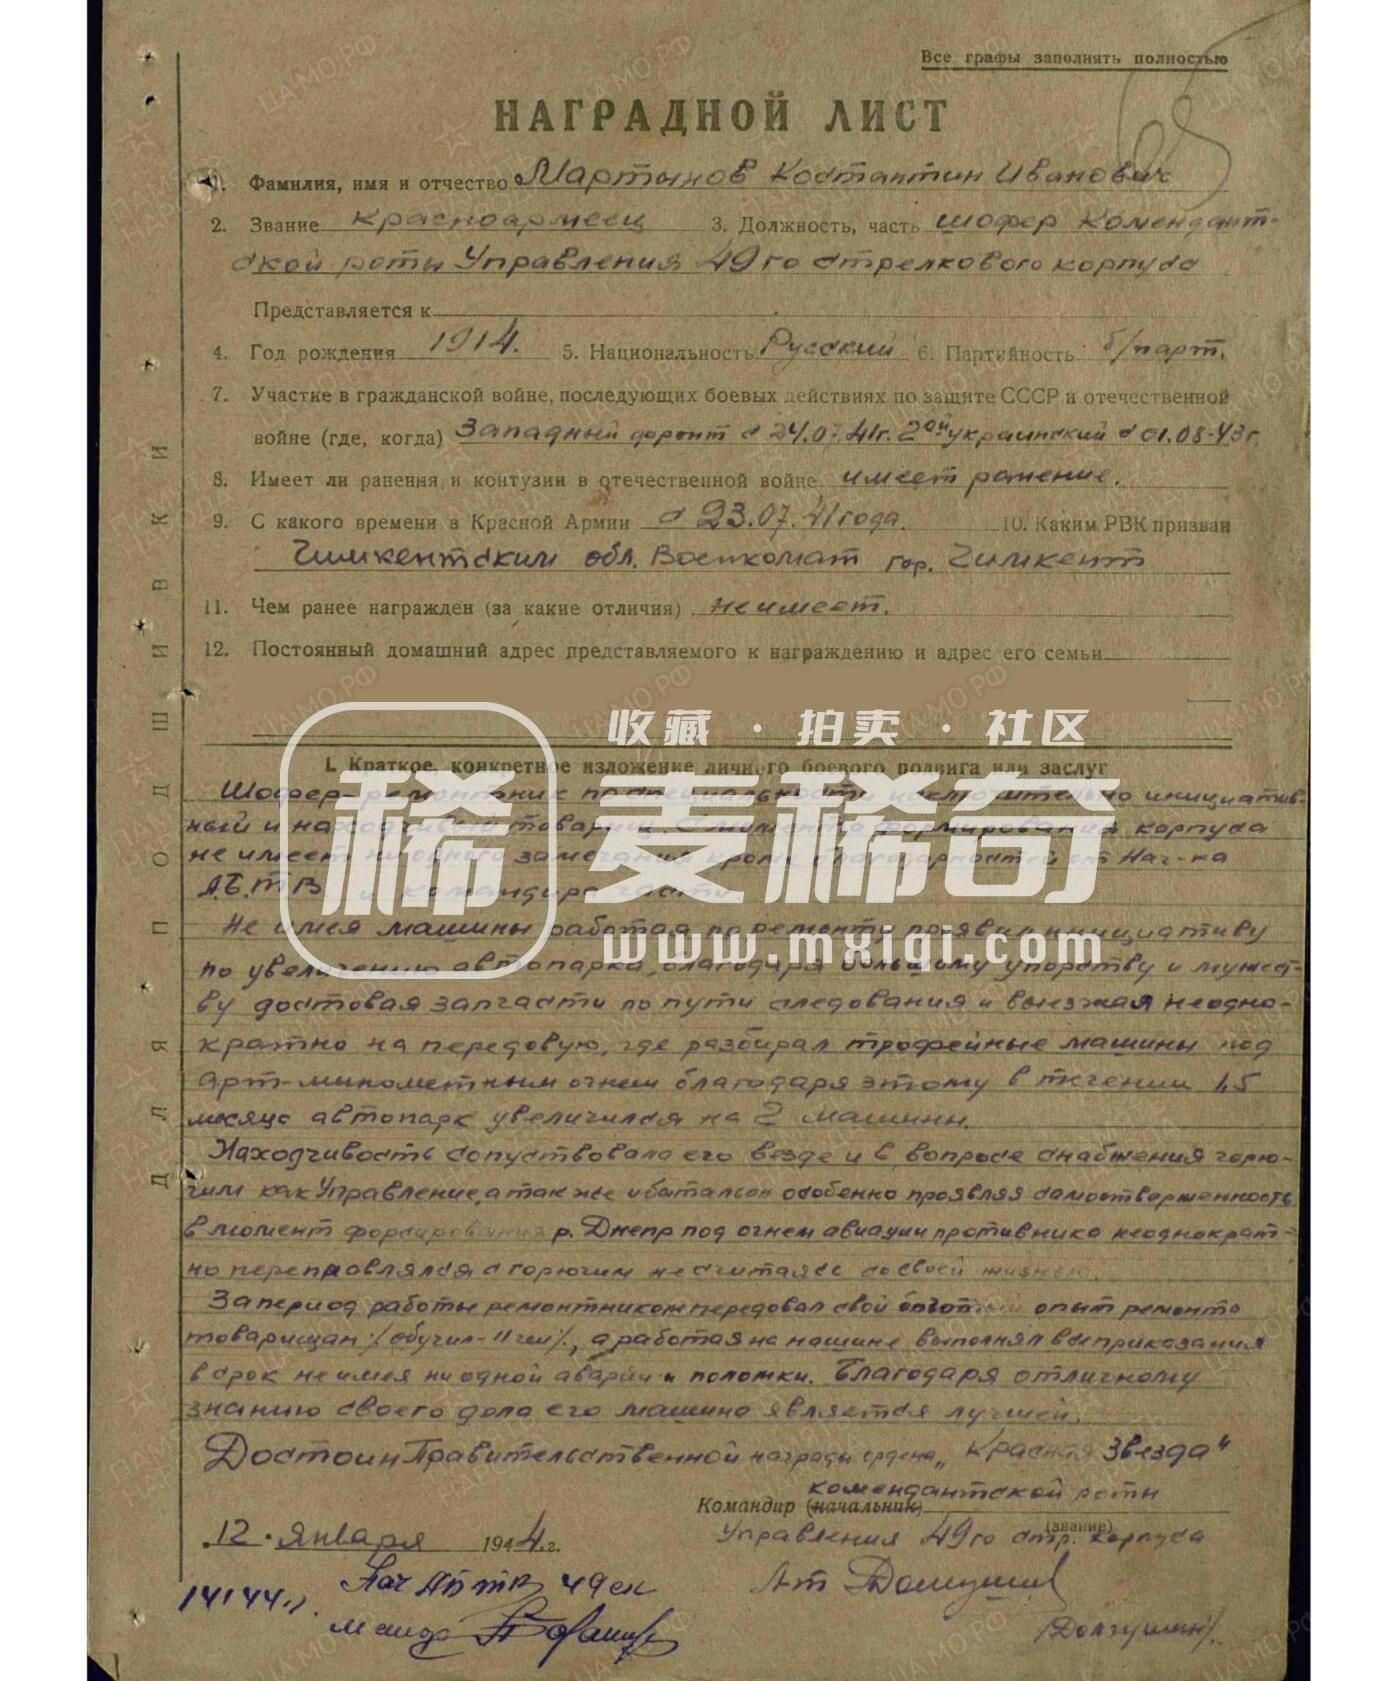 Все графы заполнять полностью
НАГРАДНОЙ ЛИСТ
1. Фамилия, имя и отчество Мартынов Костантин Иванович
2. Звание красноармеец 3. Должность, часть шофер Комендант-
ской роты Управления 49го стрелкового корпуса
Представляется к
4. Год рождения 1914. 5. Национальность Русский 6. Партийность б/парт.
7. Участие в гражданской войне, последующих боевых действиях по защите СССР и отечественной
войне (где, когда) Западный фронт с 24.07.41г. 2ой украинский с 01.08-43г.
8. Имеет ли ранения и контузии в отечественной войне имеет ранение.
9. С какого времени в Красной Армии с 23.07.41 года. 10. Каким РВК призван
Чимкентским обл. Военкомат гор. Чимкент
11. Чем ранее награжден (за какие отличия) не имеет.
12. Постоянный домашний адрес представляемого к награждению и адрес его семьи
收藏 · 拍卖 · 社区
I. Краткое, конкретное изложение личного боевого подвига или заслуг
Шофер-ремонтник по специальности исключительно инициатив-
ный и находчивый товарищ. С момента формирования корпуса
не имеет ни одного замечания кроме благодарностей от Нач-ка
А.Б.Т.В. и командира части.
稀 麦稀奇
www.mxiqi.com
Не имея машины работая по ремонту проявил инициативу
по увеличению автопарка, благодаря большому упорству и мужест-
ву достовая запчасти по пути следования и выезжая неодно-
кратно на передовую, где разбирал трофейные машины под
арт-минометным огнем благодаря этому в течении 1,5
месяца автопарк увеличился на 2 машины.
Находчивость сопуствовала его везде и в вопросе снабжения горю-
чим как Управление, а так же и батальон особенно проявляя самоотверженность
в момент форсирования р. Днепр под огнем авиации противника неоднократ-
но переправлялся с горючим не считаясь со своей жизнью.
За период работы ремонтником передовал свой богатый опыт ремонта
товарищам /обучил-11 чел/, а работая на машине выполнял все приказания
в срок не имея ни одной аварии и поломки. Благодаря отличному
знанию своего дела его машина является лучшей.
Достоин Правительственной награды ордена „Красная Звезда“
комендантской роты
Командир (начальник)
(звание)
12 · января 1944.г. Управления 49го стр. корпуса
14/1 44 г. Нач АБТВ 49 ск
Долгушин/.
ДЛЯ ПОДШИВКИ
ЦА МО РФ